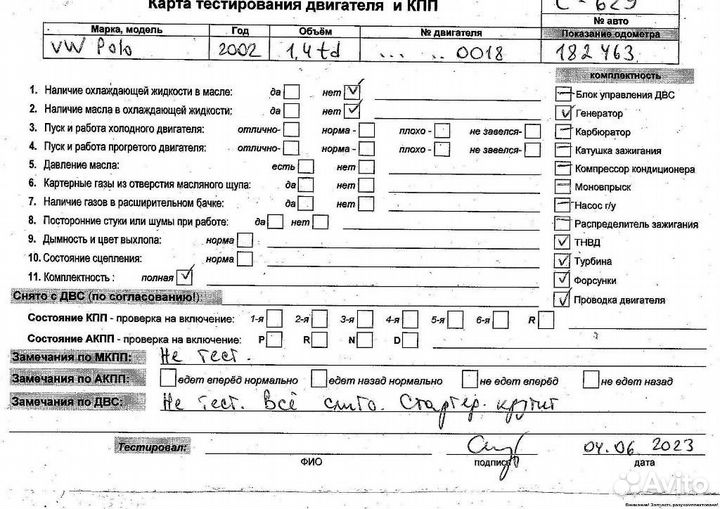 Карта тестирования двигателя и КПП
С - 629
№ авто
Марка, модель Год Объём № двигателя Показание одометра
VW Polo 2002 1,4td ... .. 0018 182 463
комплектность
1. Наличие охлаждающей жидкости в масле: да нет ✓
Блок управления ДВС
2. Наличие масла в охлаждающей жидкости: да нет ✓
✓ Генератор
3. Пуск и работа холодного двигателя: отлично- норма - плохо - не завелся-
Карбюратор
4. Пуск и работа прогретого двигателя: отлично- норма - плохо - не завелся-
Катушка зажигания
5. Давление масла: есть нет
Компрессор кондиционера
6. Картерные газы из отверстия масляного щупа: да нет
Моновпрыск
7. Наличие газов в расширительном бачке: да нет
Насос г/у
8. Посторонние стуки или шумы при работе: да нет
Распределитель зажигания
9. Дымность и цвет выхлопа: норма
✓ ТНВД
10. Состояние сцепления: норма
✓ Турбина
11. Комплектность : полная ✓
✓ Форсунки
Снято с ДВС (по согласованию!):
✓ Проводка двигателя
Состояние КПП - проверка на включение: 1-я 2-я 3-я 4-я 5-я 6-я R
Состояние АКПП - проверка на включение: P R N D
Замечания по МКПП: Не тест.
Замечания по АКПП: едет вперёд нормально едет назад нормально не едет вперёд не едет назад
Замечания по ДВС: Не тест. Всё слито. Стартер крутит
Тестировал: 04.06.2023
ФИО подпись дата
Avito